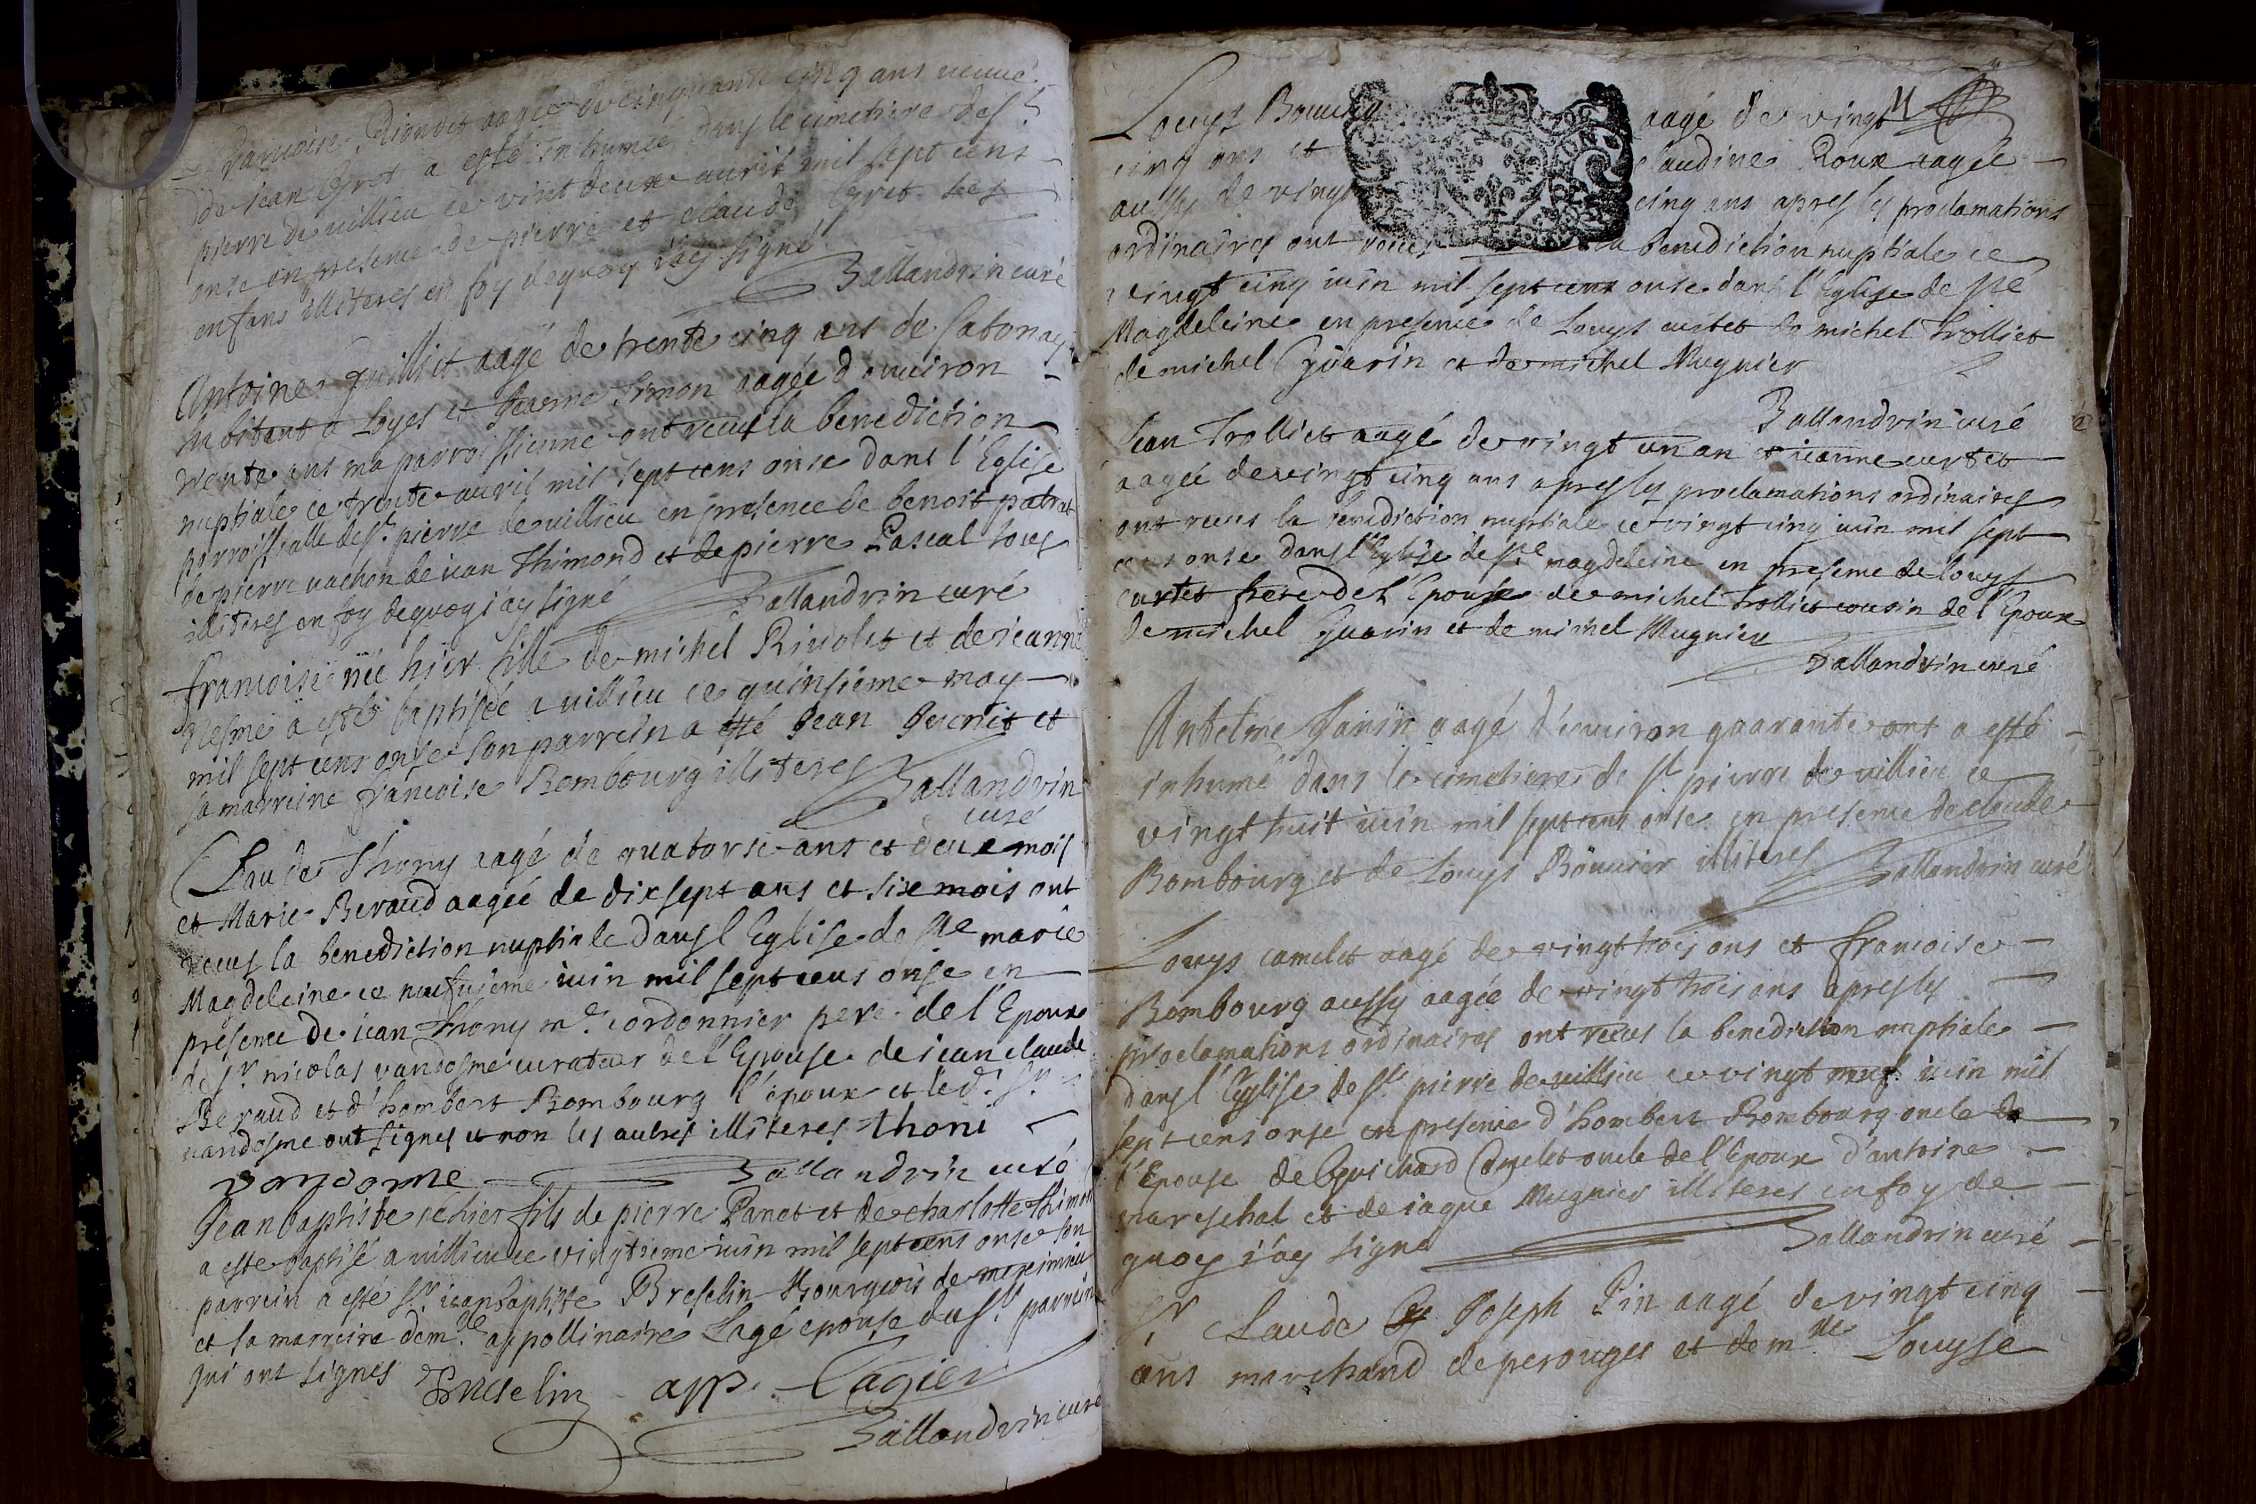 francoise aagée de cinquante cinq ans veuve
de jean a esté inhumée dans le cimetiere de st
pierre de villieu ce vint deux avril mil sept cens
onse en presence de pierre et claude ses
enfans illiteres en foy dequoy jay signé
Ballandrin curé
Antoine aagé de trente cinq ans de
habitant a Loyes et jeanne aagée d'environ
trente ans ma parroissienne ont receus la benediction
nuptiale ce trente avril mil sept cens onse dans l'Eglise
parroissialle de st pierre de villieu en presence de benoist
de pierre vachon de jean Thimond et de pierre Pascal tous
illiteres en foy dequoy j'ay signé Ballandrin curé
francoise née hier fille de michel Rivolet et de jeanne
Nesme a esté baptisée a villieu ce quinsieme may
mil sept cens onse son parrein a esté Jean et
sa marreine francoise Bombourg illiteres Ballandrin
curé
Claude Thony aagé de quatorse ans et deux mois
et Marie Beraud aagée de dix sept ans et six mois ont
receus la benediction nuptiale dans l'Eglise de ste marie
Magdeleine ce neufvieme iuin mil sept cens onse en
presence de jean Thony me cordonnier pere de l'Epoux
de sr nicolas vandosme curateur de l'Epouse de jean claude
Beraud et d'hombert Bombourg l'époux et led. sr
vandosme ont signes et non les autres illiteres thoni
vandome Ballandrin curé
Jean baptiste né hier fils de pierre Panet et de charlotte Thimond
a esté baptisé a villieu ce vingtieme iuin mil sept cens onse son
parrein a esté sr jean baptiste Breselin Bourgeois de meximieu
et sa marreine demlle appollinaire Lagé epouse dud. sr parrein
qui ont signes Breselin app. Lagier
Ballandrin curé
Louys Bouvier aagé de vingt
cinq ans et claudine Roux aagée
aussy de vingt cinq ans apres les proclamations
ordinaires ont receus la benediction nuptiale ce
vingt cinq iuin mil sept cens onse dans l'Eglise de ste
Magdeleine en presence de Louys curtet de michel Trolliet
de michel Guarin et de michel Mugnier
Ballandrin curé
Jean Trolliet aagé de vingt un an et jeanne curtet
aagée de vingt cinq ans apres les proclamations ordinaires
ont receus la benediction nuptiale ce vingt cinq iuin mil sept
cens onse dans l'Eglise de ste magdeleine en presence de louys
curtet frere de l'Epouse de michel trolliet cousin de l'Epoux
de michel Guarin et de michel Mugnier
Ballandrin curé
Antelme Janin aagé d'environ quarante ans a esté
inhumé dans le cimetiere de st pierre de villieu ce
vingt huit iuin mil sept cens onse en presence de claude
Bombourg et de Louys Bouvier illiteres Ballandrin curé
Louys camelet aagé de vingt trois ans et francoise
Bombourg aussy aagée de vingt trois ans apres les
proclamations ordinaires ont receus la benediction nuptiale
dans l'Eglise de st pierre de villieu ce vingt neuf iuin mil
sept cens onse en presence d'hombert Bombourg oncle de
l'Epouse de Guichard Camelet oncle de l'Epoux d'antoine
mareschal et de jaque Mugnier illiteres en foy de
quoy j'ay signé Ballandrin curé
Sr Claude Joseph Pin aagé de vingt cinq
ans marchand de perouges et demlle Louyse